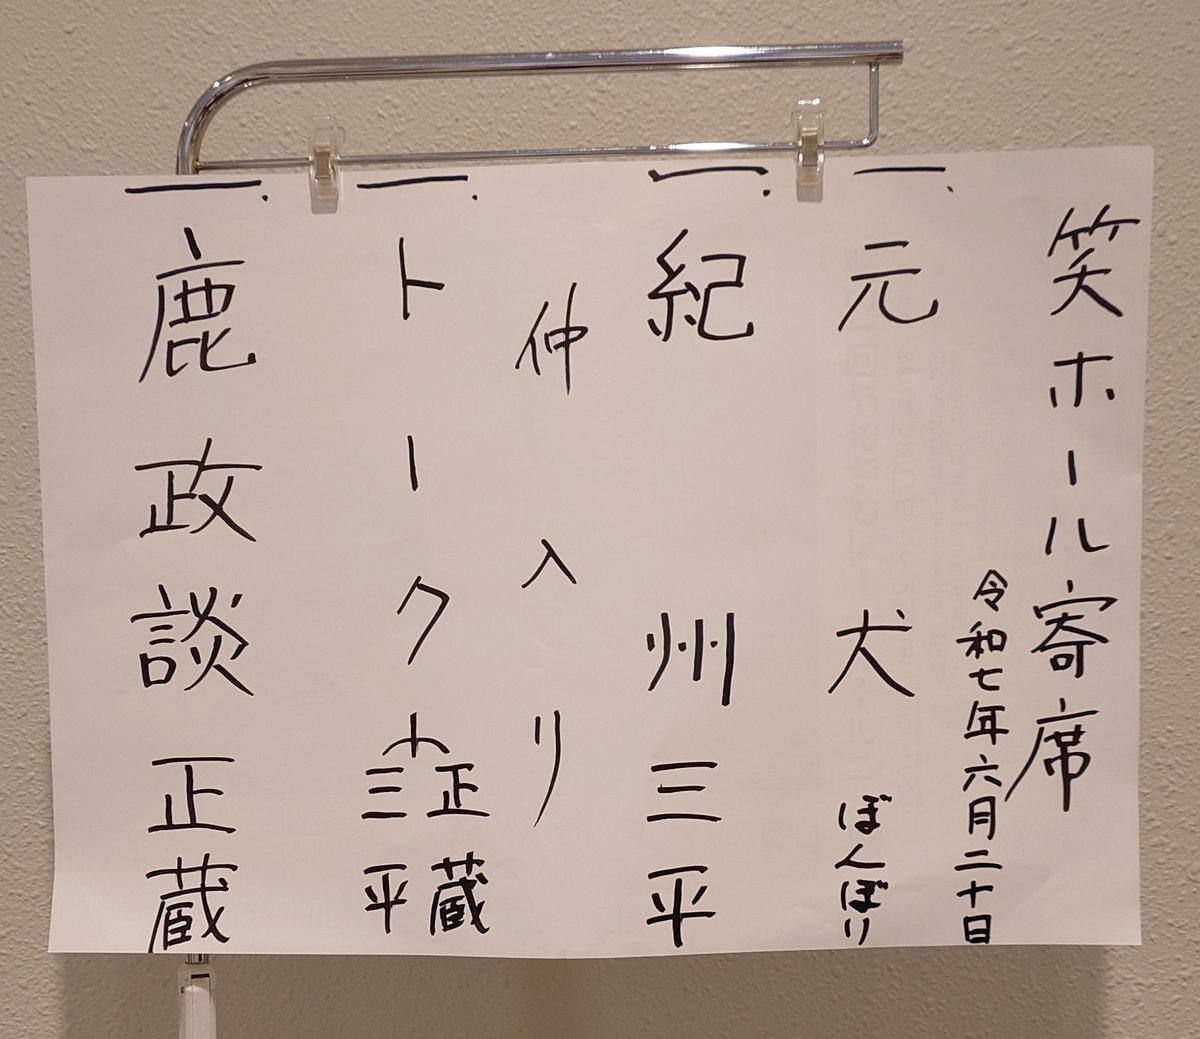 笑ホール寄席
令和七年六月二十日
一.元犬 ぼんぼり
一.紀州 三平
仲入り
一.トーク 正蔵 三平
一.鹿政談 正蔵